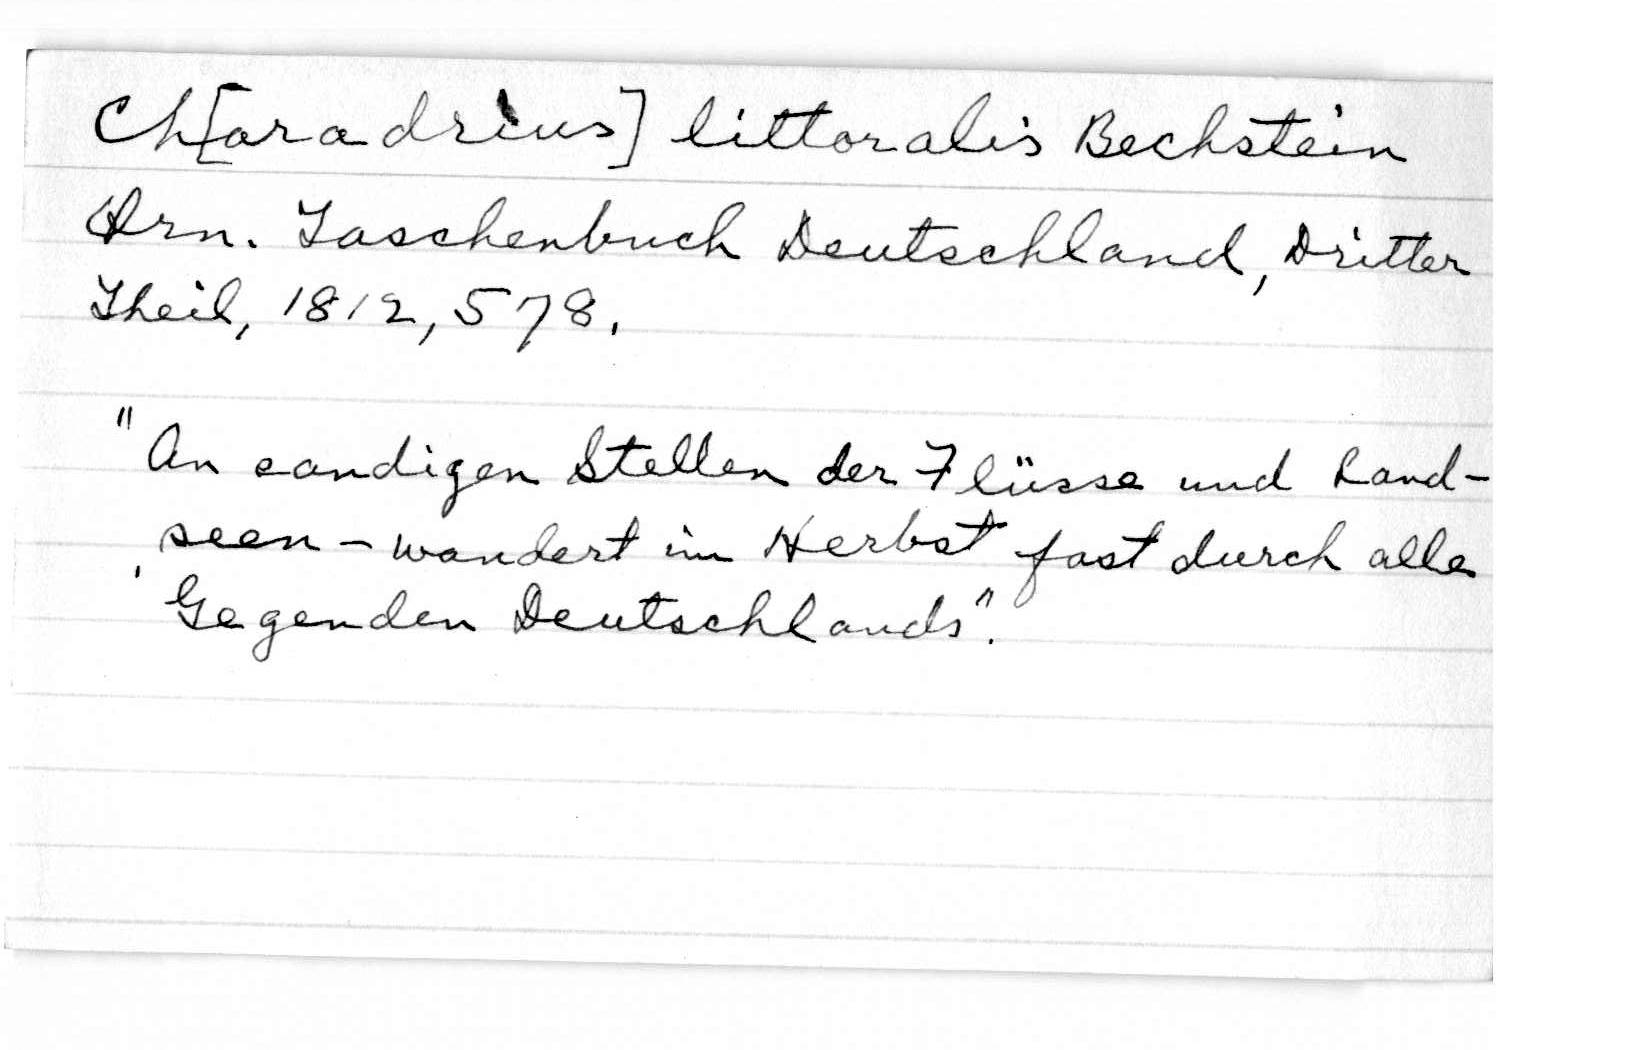 Ch[aradrius] littoralis Bechstein
Orn. Taschenbuch Deutschland, Dritter
Theil, 1812, 578.
"An sandigen Stellen der Flüsse und Land-
seen - wandert im Herbst fast durch alle
Gegenden Deutschlands".